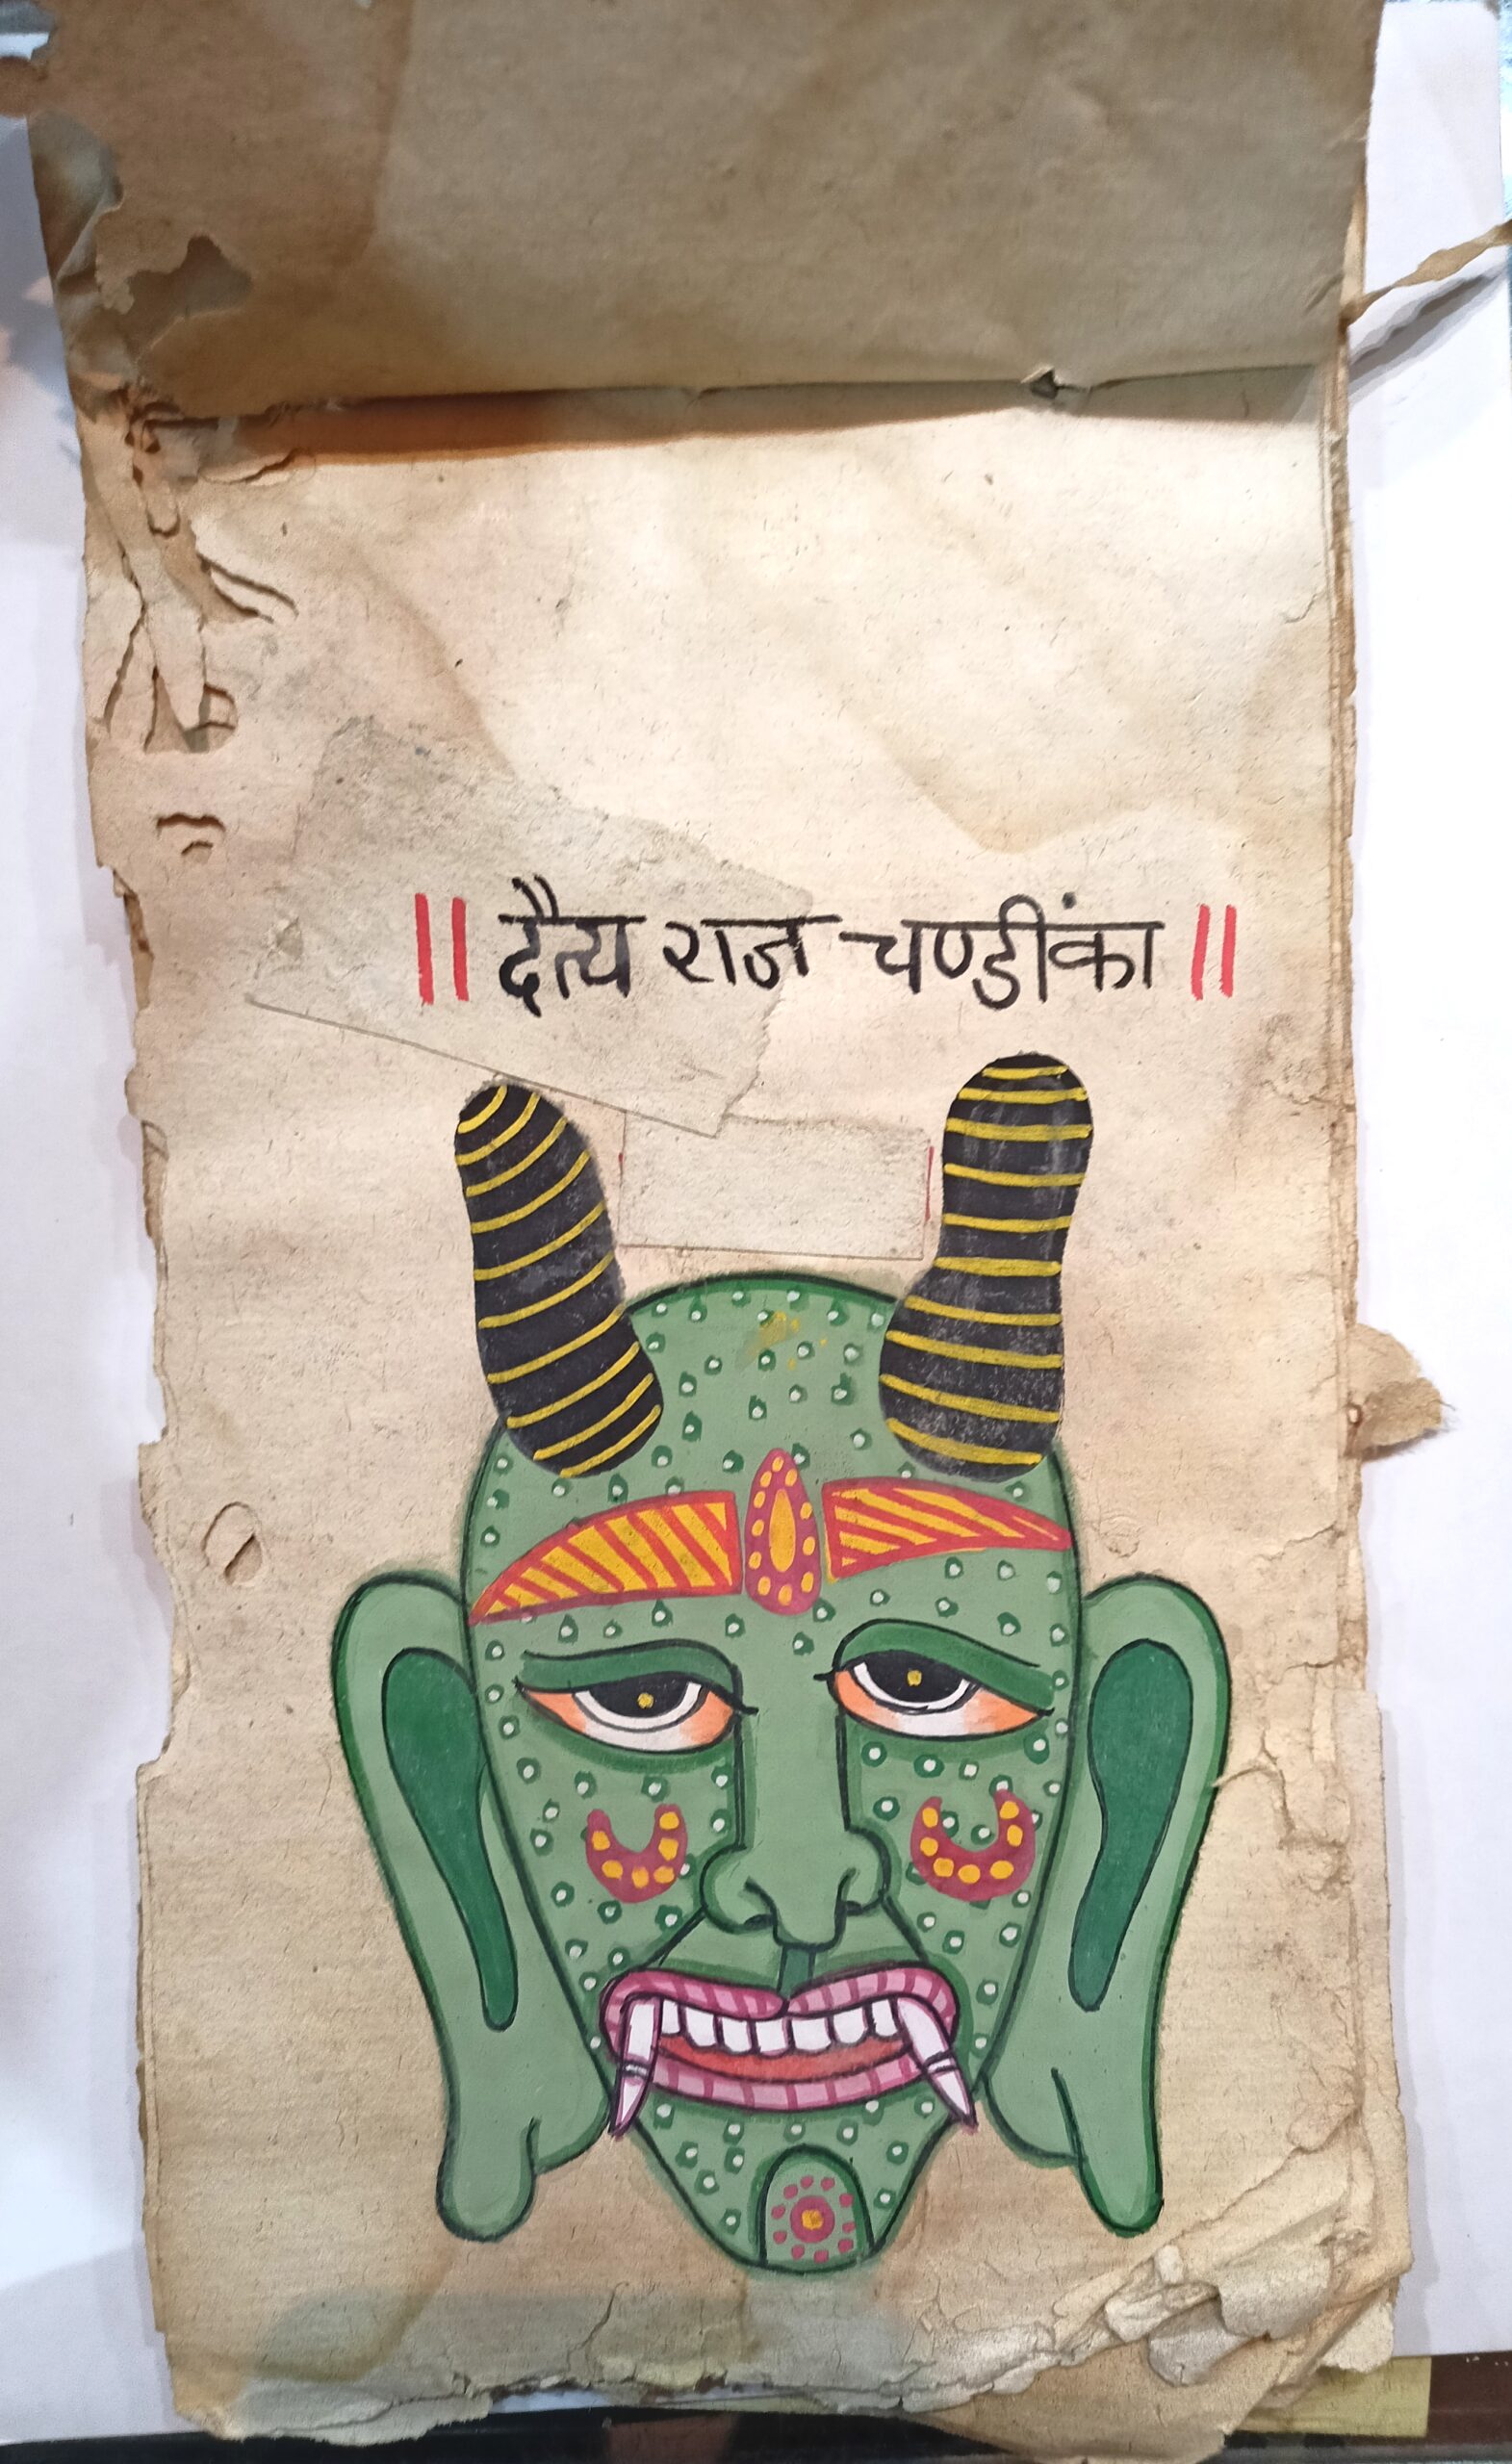 || दैत्य राज चण्डींका ||